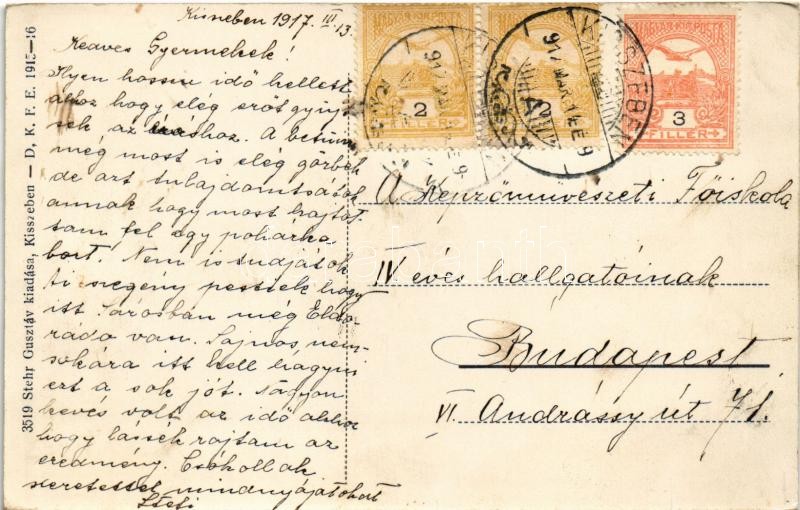 Kisszeben 1917. III/13.
Kedves Gyermekek!
Ilyen hosszu idő kellett
ahhoz hogy elég erőt gyüjt-
sek az iráshoz. A betüim
meg most is elég görbék
de azt tulajdonitsátok
annak hogy most hajtot-
tam fel egy pohárka
bort. Nem is tudjátok
ti szegény pestiek hogy
itt Sárosban még Eldo-
rádo van. Sajnos nem-
sokára itt kell hagyni
ezt a sok jót. Nagyon
kevés volt az idő ahhoz
hogy lássék rajtam az
eredmény. Csókollak
szeretettel mindnyájatokat
3519 Stehr Gusztáv kiadása, Kisszeben — D. K. F. E. 1915—16
MAGYAR KIR. POSTA
2
MAGYAR KIR. POSTA
2
MAGYAR KIR. POSTA
3
FILLÉR
KISSZEBEN
A Képzőművészeti Főiskola
IV éves hallgatóinak
Budapest
VI Andrássy út 71.